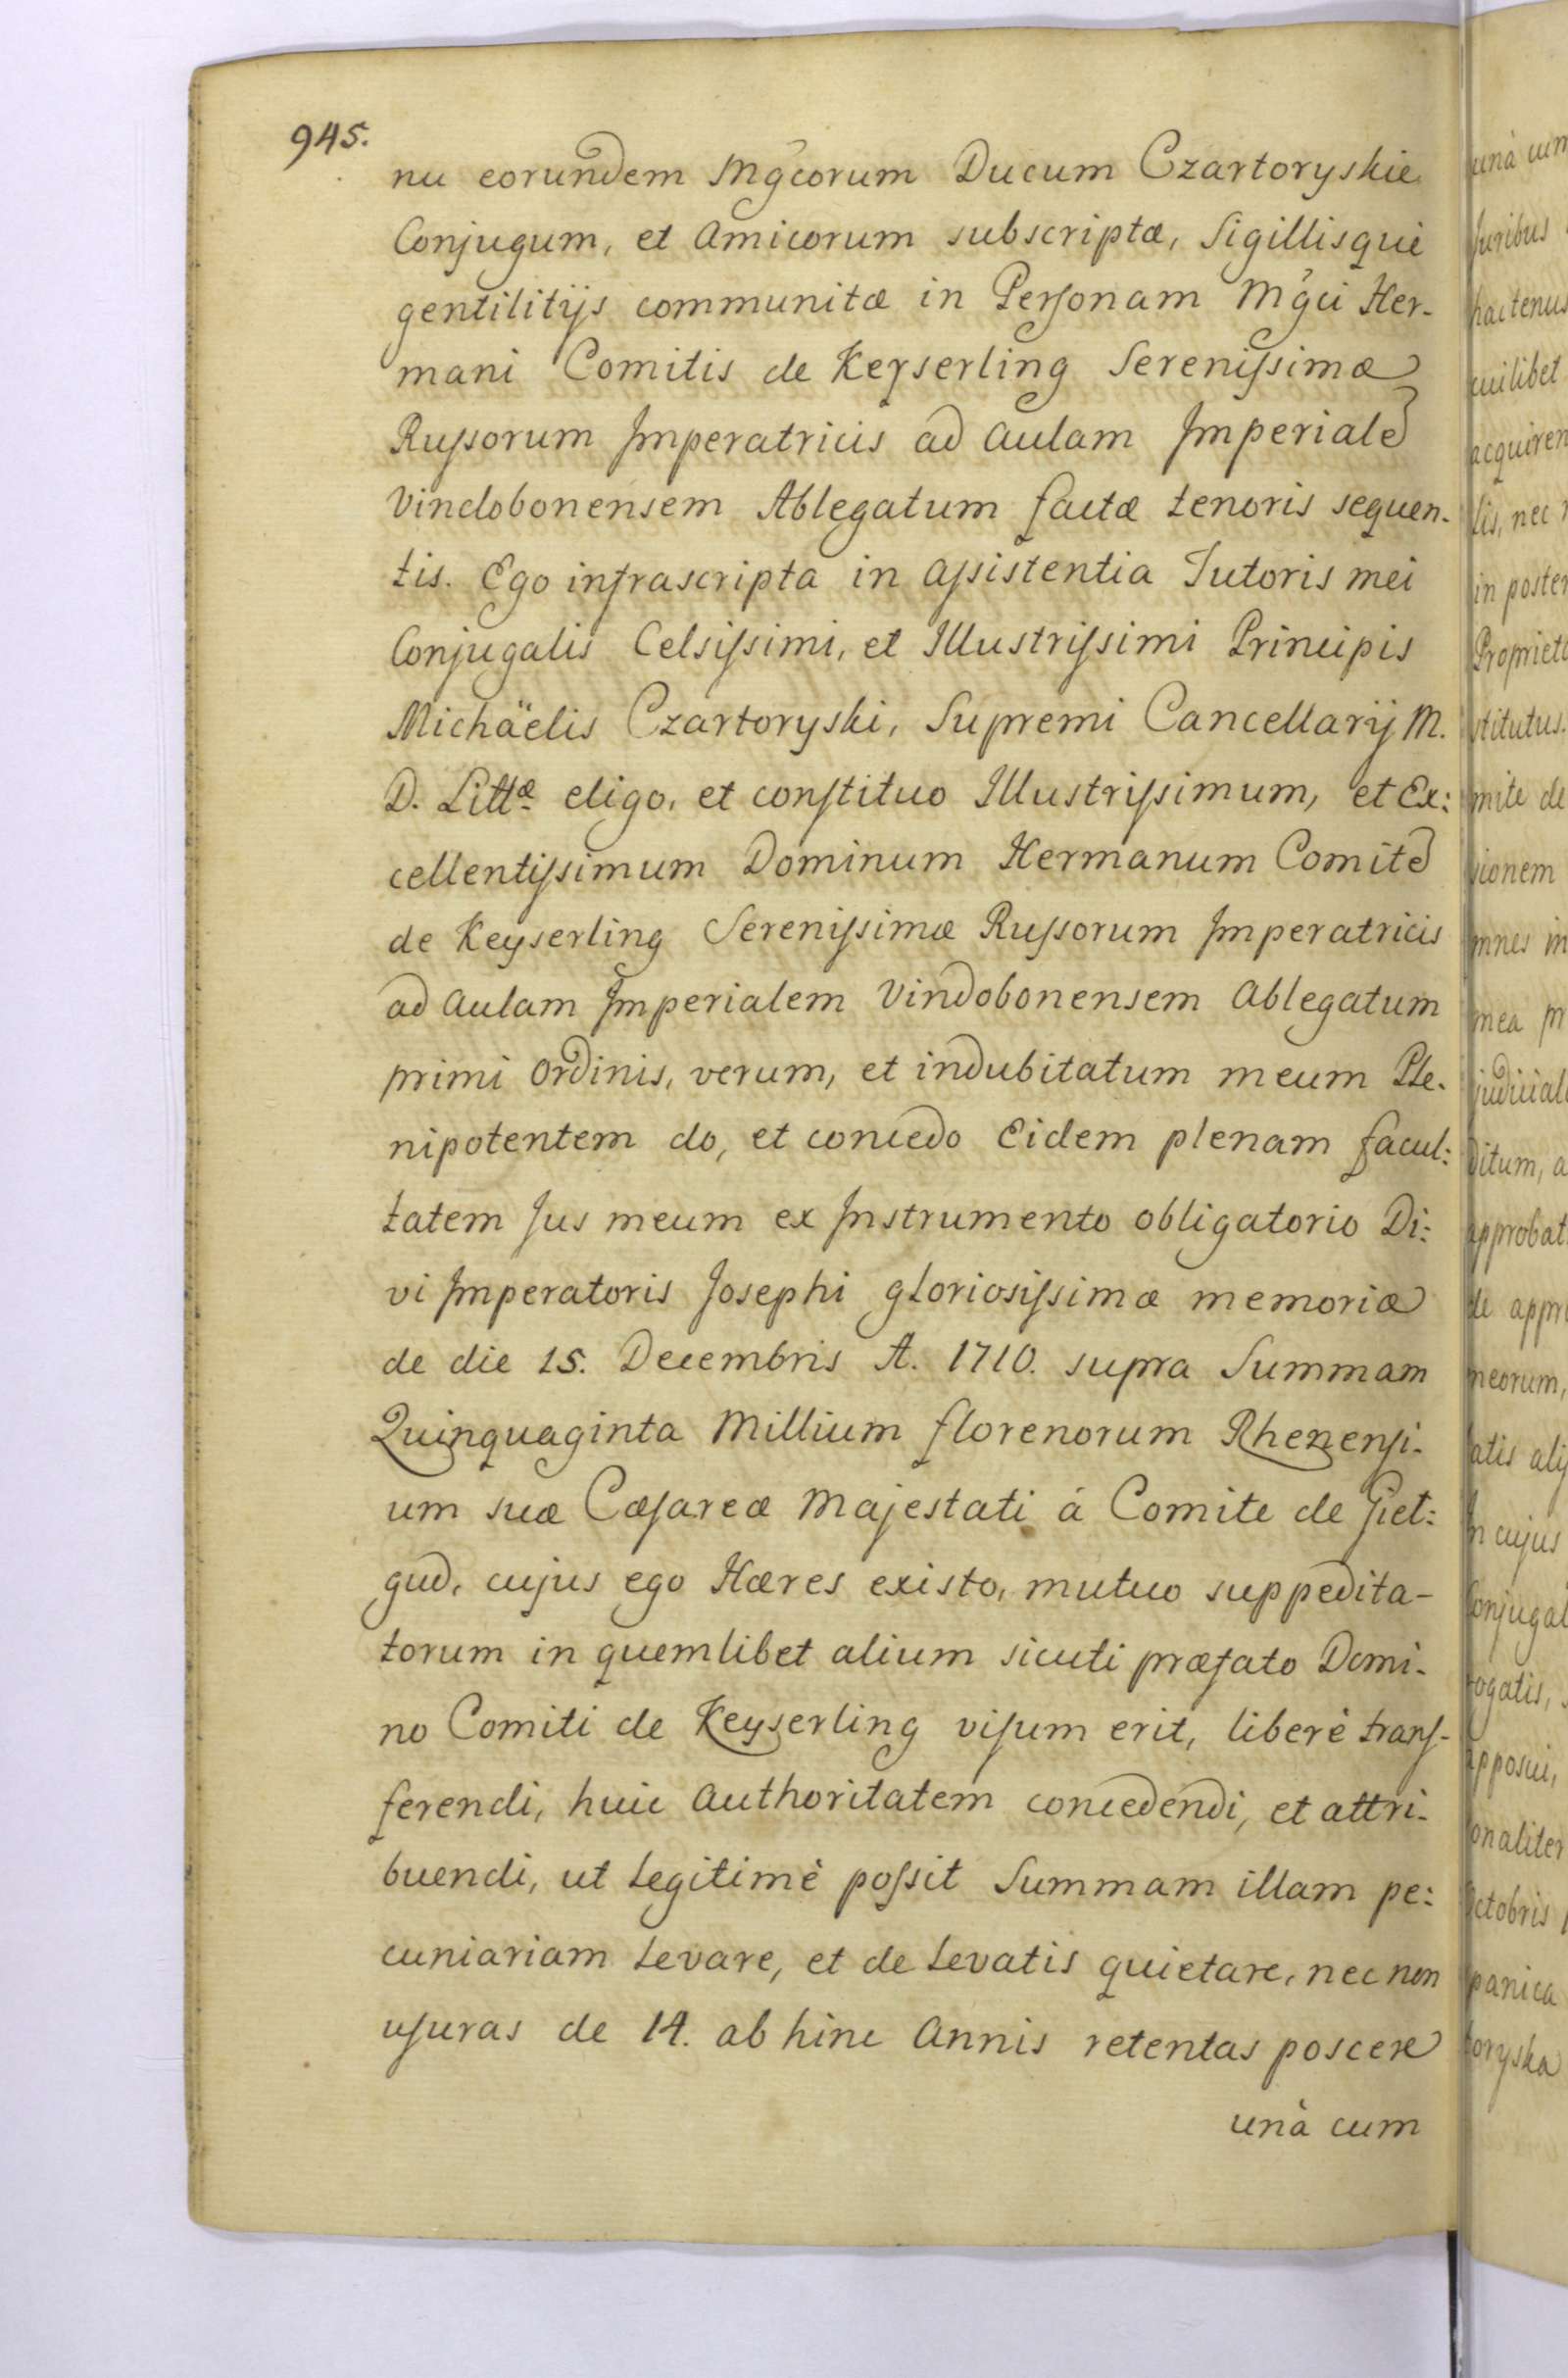 945.
nu eorundem Mgcorum Ducum Czartoryskie
Conjugum, et Amicorum subscriptæ, Sigillisque
gentilitijs communitæ in Personam Mgci Her-
mani Comitis de Keyserling Serenissimæ
Russorum Imperatricis ad Aulam Imperialē
Vindobonensem Ablegatum factæ tenoris sequen-
tis. Ego infrascripta in Assistentia Tutoris mei
Conjugalis Celsissimi, et Illustrissimi Principis
Michäelis Czartoryski, Supremi Cancellarij M.
D. Littæ eligo, et constituo Illustrissimum, et Ex:
cellentissimum Dominum Hermanum Comitē
de Keyserling Serenissimæ Russorum Imperatricis
ad Aulam Imperialem Vindobonensem Ablegatum
primi Ordinis, verum, et indubitatum meum Ple-
nipotentem do, et concedo Eidem plenam facul:
tatem Jus meum ex Instrumento obligatorio Di:
vi Imperatoris Josephi gloriosissimæ memoriæ
de die 15. Decembris A. 1710. supra Summam
Quinquaginta Millium florenorum Rhenensi-
um suæ Cæsareæ Majestati á Comite de Giet:
gud, cujus ego Hæres existo, mutuo suppedita-
torum in quemlibet alium sicuti præfato Domi-
no Comiti de Keyserling visum erit, liberè trans-
ferendi, huic Authoritatem concedendi, et attri-
buendi, ut legitimè possit Summam illam pe:
cuniariam levare, et de levatis quietare, nec non
usuras de 14. ab hinc Annis retentas poscere
unà cum
unà cum
Juribus
hactenus
cuilibet
acquiren
lis, nec
in poster
Proprieta
stitutus.
mite de
sionem
mnes in
mea pr
judicial
ditum, a
approbat
de appr
meorum,
latis alij
In cujus
Conjugal
rogatis,
apposui,
onaliter
Octobris
panica
toryska